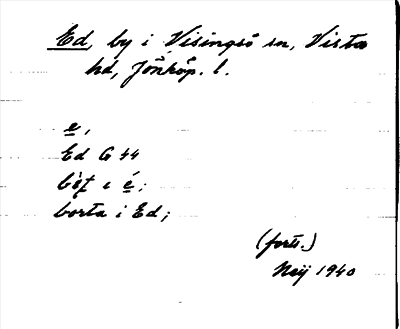 Ed, by i Visingsö sn, Vista
hd, Jönköp. l.
e,
Ed G 44
i é;
borta i Ed;
(forts.)
1940